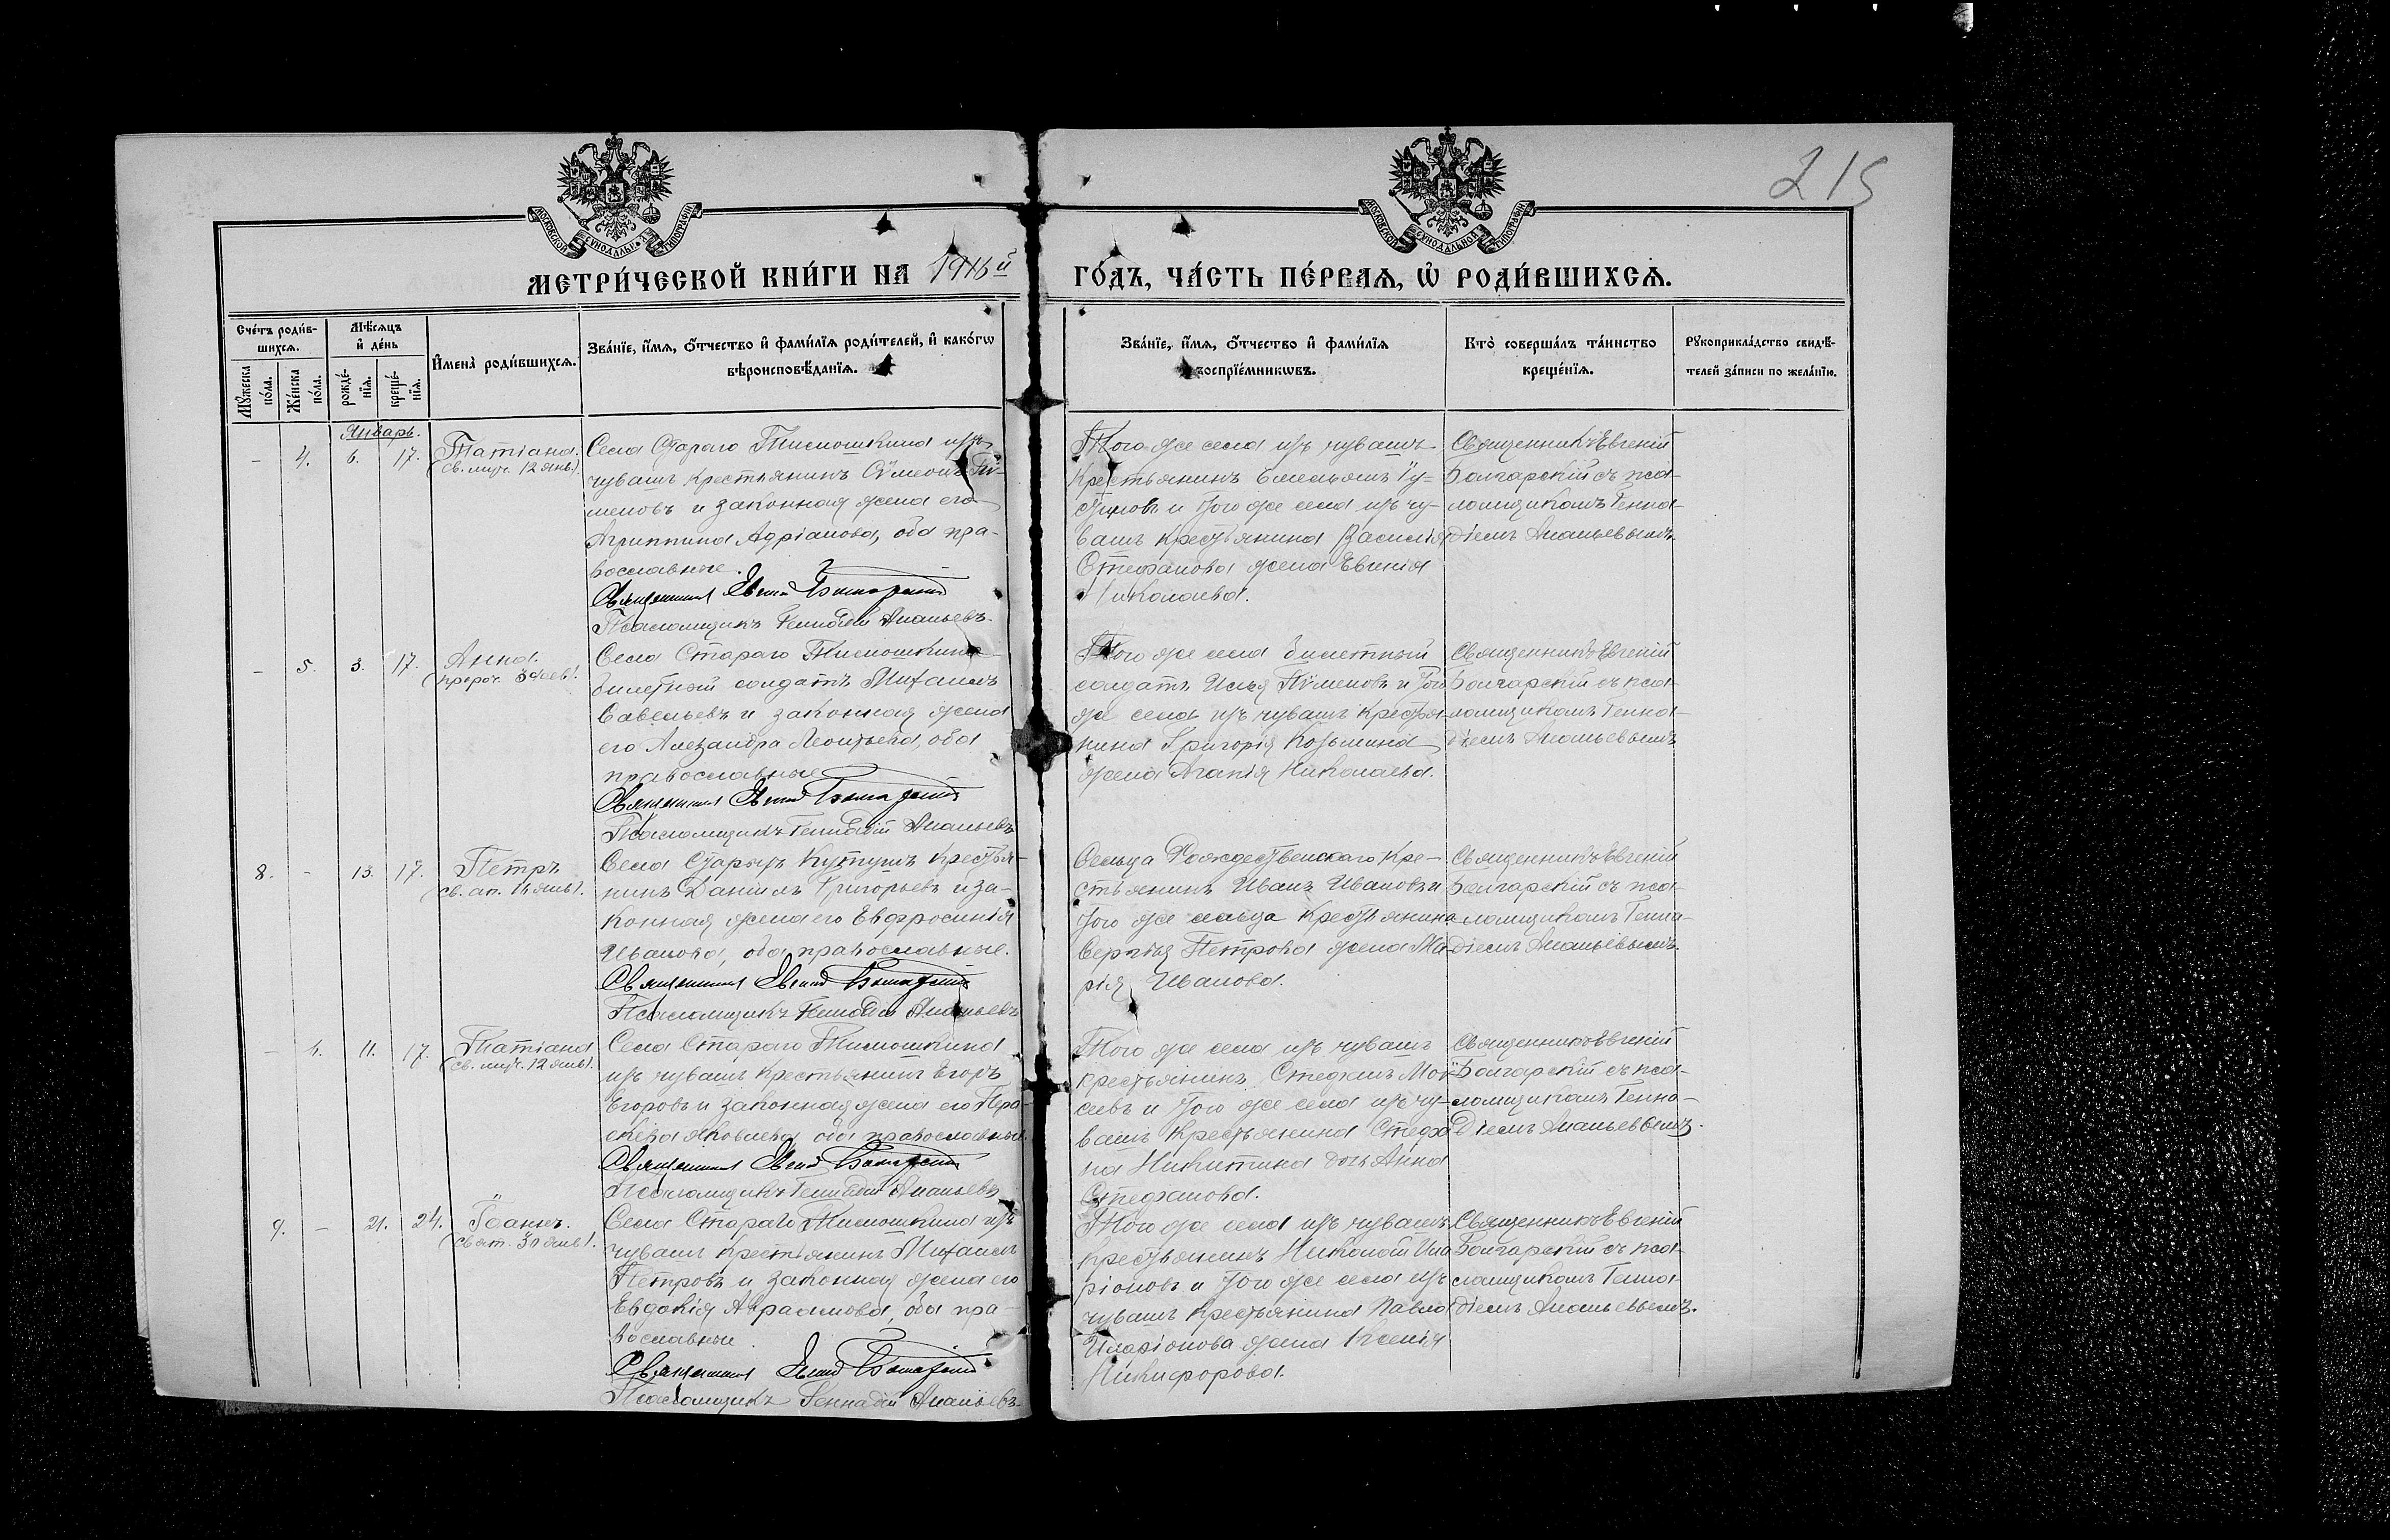 215
МОСКОВСКОЙ СѴНОДАЛЬНОЙ ТИПОГРАФІИ
МОСКОВСКОЙ СѴНОДАЛЬНОЙ ТИПОГРАФІИ
МЕТРИ́ЧЕСКОЙ КНИ́ГИ НА 1916й ГО́ДЪ, ЧА́СТЬ ПЕ́РВАЯ, Ѡ҆ РОДИ́ВШИХСЯ.
Сче́тъ роди́в-
шихся.
Мѣ́сяцъ
и҆ де́нь
Мꙋ́жеска
по́ла.
Же́нска
по́ла.
рожде́-
нїя.
креще́-
нїя.
И҆мена̀ роди́вшихся.
Зва́нїе, и҆́мя, ѻ҆́тчество и҆ фами́лїя роди́телей, и҆ како́гѡ
вѣроисповѣ́данїя.
Зва́нїе, и҆́мя, ѻ҆́тчество и҆ фами́лїя
воспрїе́мникѡвъ.
Кто̀ соверша́лъ та́инство
креще́нїя.
Рꙋкоприкла́дство свидѣ́-
телей за́писи по жела́нїю.
Январь.
- 4. 6. 17. Татіана.
(св. муч. 12 янв.)
Села Стараго Тимошкина изъ
чувашъ крестьянинъ Сѵмеонъ Пі-
меновъ и законная жена его
Агриппина Адріанова, оба пра-
вославные.
Священникъ Евгеній Болгарскій
Псаломщикъ Геннадій Ананьевъ.
Того же села изъ чувашъ
крестьянинъ
и того же села изъ чу-
вашъ крестьянина Василія
Стефанова жена Евгенія
Николаева.
Священникъ Евгеній
Болгарскій съ пса-
ломщикомъ Генна-
діемъ Ананьевымъ.
- 5. 3. 17. Анна.
(прор. 3 фев.)
Села Стараго Тимошкина
билетный солдатъ Михаилъ
Савельевъ и законная жена
его Александра Леонтьева, оба
православные
Священникъ Евгеній Болгарскій
Псаломщикъ Геннадій Ананьевъ
Того же села билетный
солдатъ Илья Піменовъ и того
же села изъ чувашъ крестья-
нина Григорія Козьмина
жена Агапія Николаева.
Священникъ Евгеній
Болгарскій съ пса-
ломщикомъ Генна-
діемъ Ананьевымъ
8. - 13. 17. Петръ
(св. ап. 16 янв.)
Села Старыхъ Кутушъ крестья-
нинъ Даніилъ Григорьевъ и за-
конная жена его Евфросинія
Иванова, оба православные.
Священникъ Евгеній Болгарскій
Псаломщикъ Геннадій Ананьевъ
Сельца Рождественскаго кре-
стьянинъ Иванъ Ивановъ и
того же сельца крестьянина
Сергѣя Петрова жена Ма-
рія Иванова.
Священникъ Евгеній
Болгарскій съ пса-
ломщикомъ Генна-
діемъ Ананьевымъ.
- 6. 11. 17. Татіана
(св. муч. 12 янв.)
Села Стараго Тимошкина
изъ чувашъ крестьянинъ Егоръ
Егоровъ и законная жена его Пара-
скева Яковлева, оба православные.
Священникъ Евгеній Болгарскій
Псаломщикъ Геннадій Ананьевъ
Того же села изъ чувашъ
крестьянинъ Стефанъ Мои-
сеевъ и того же села изъ чу-
вашъ крестьянина Стефа-
на Никитина дочь Анна
Стефанова.
Священникъ Евгеній
Болгарскій съ пса-
ломщикомъ Генна-
діемъ Ананьевымъ.
9. - 21. 24. Іоаннъ.
(свят. 30 янв.)
Села Стараго Тимошкина изъ
чувашъ крестьянинъ Михаилъ
Петровъ и законная жена его
Евдокія Авраамова, оба пра-
вославные.
Священникъ Евгеній Болгарскій
Псаломщикъ Геннадій Ананьевъ
Того же села изъ чувашъ
крестьянинъ Николай Ила-
ріоновъ и того же села изъ
чувашъ крестьянина Павла
Иларіонова жена Ксенія
Никифорова.
Священникъ Евгеній
Болгарскій съ пса-
ломщикомъ Генна-
діемъ Ананьевымъ.